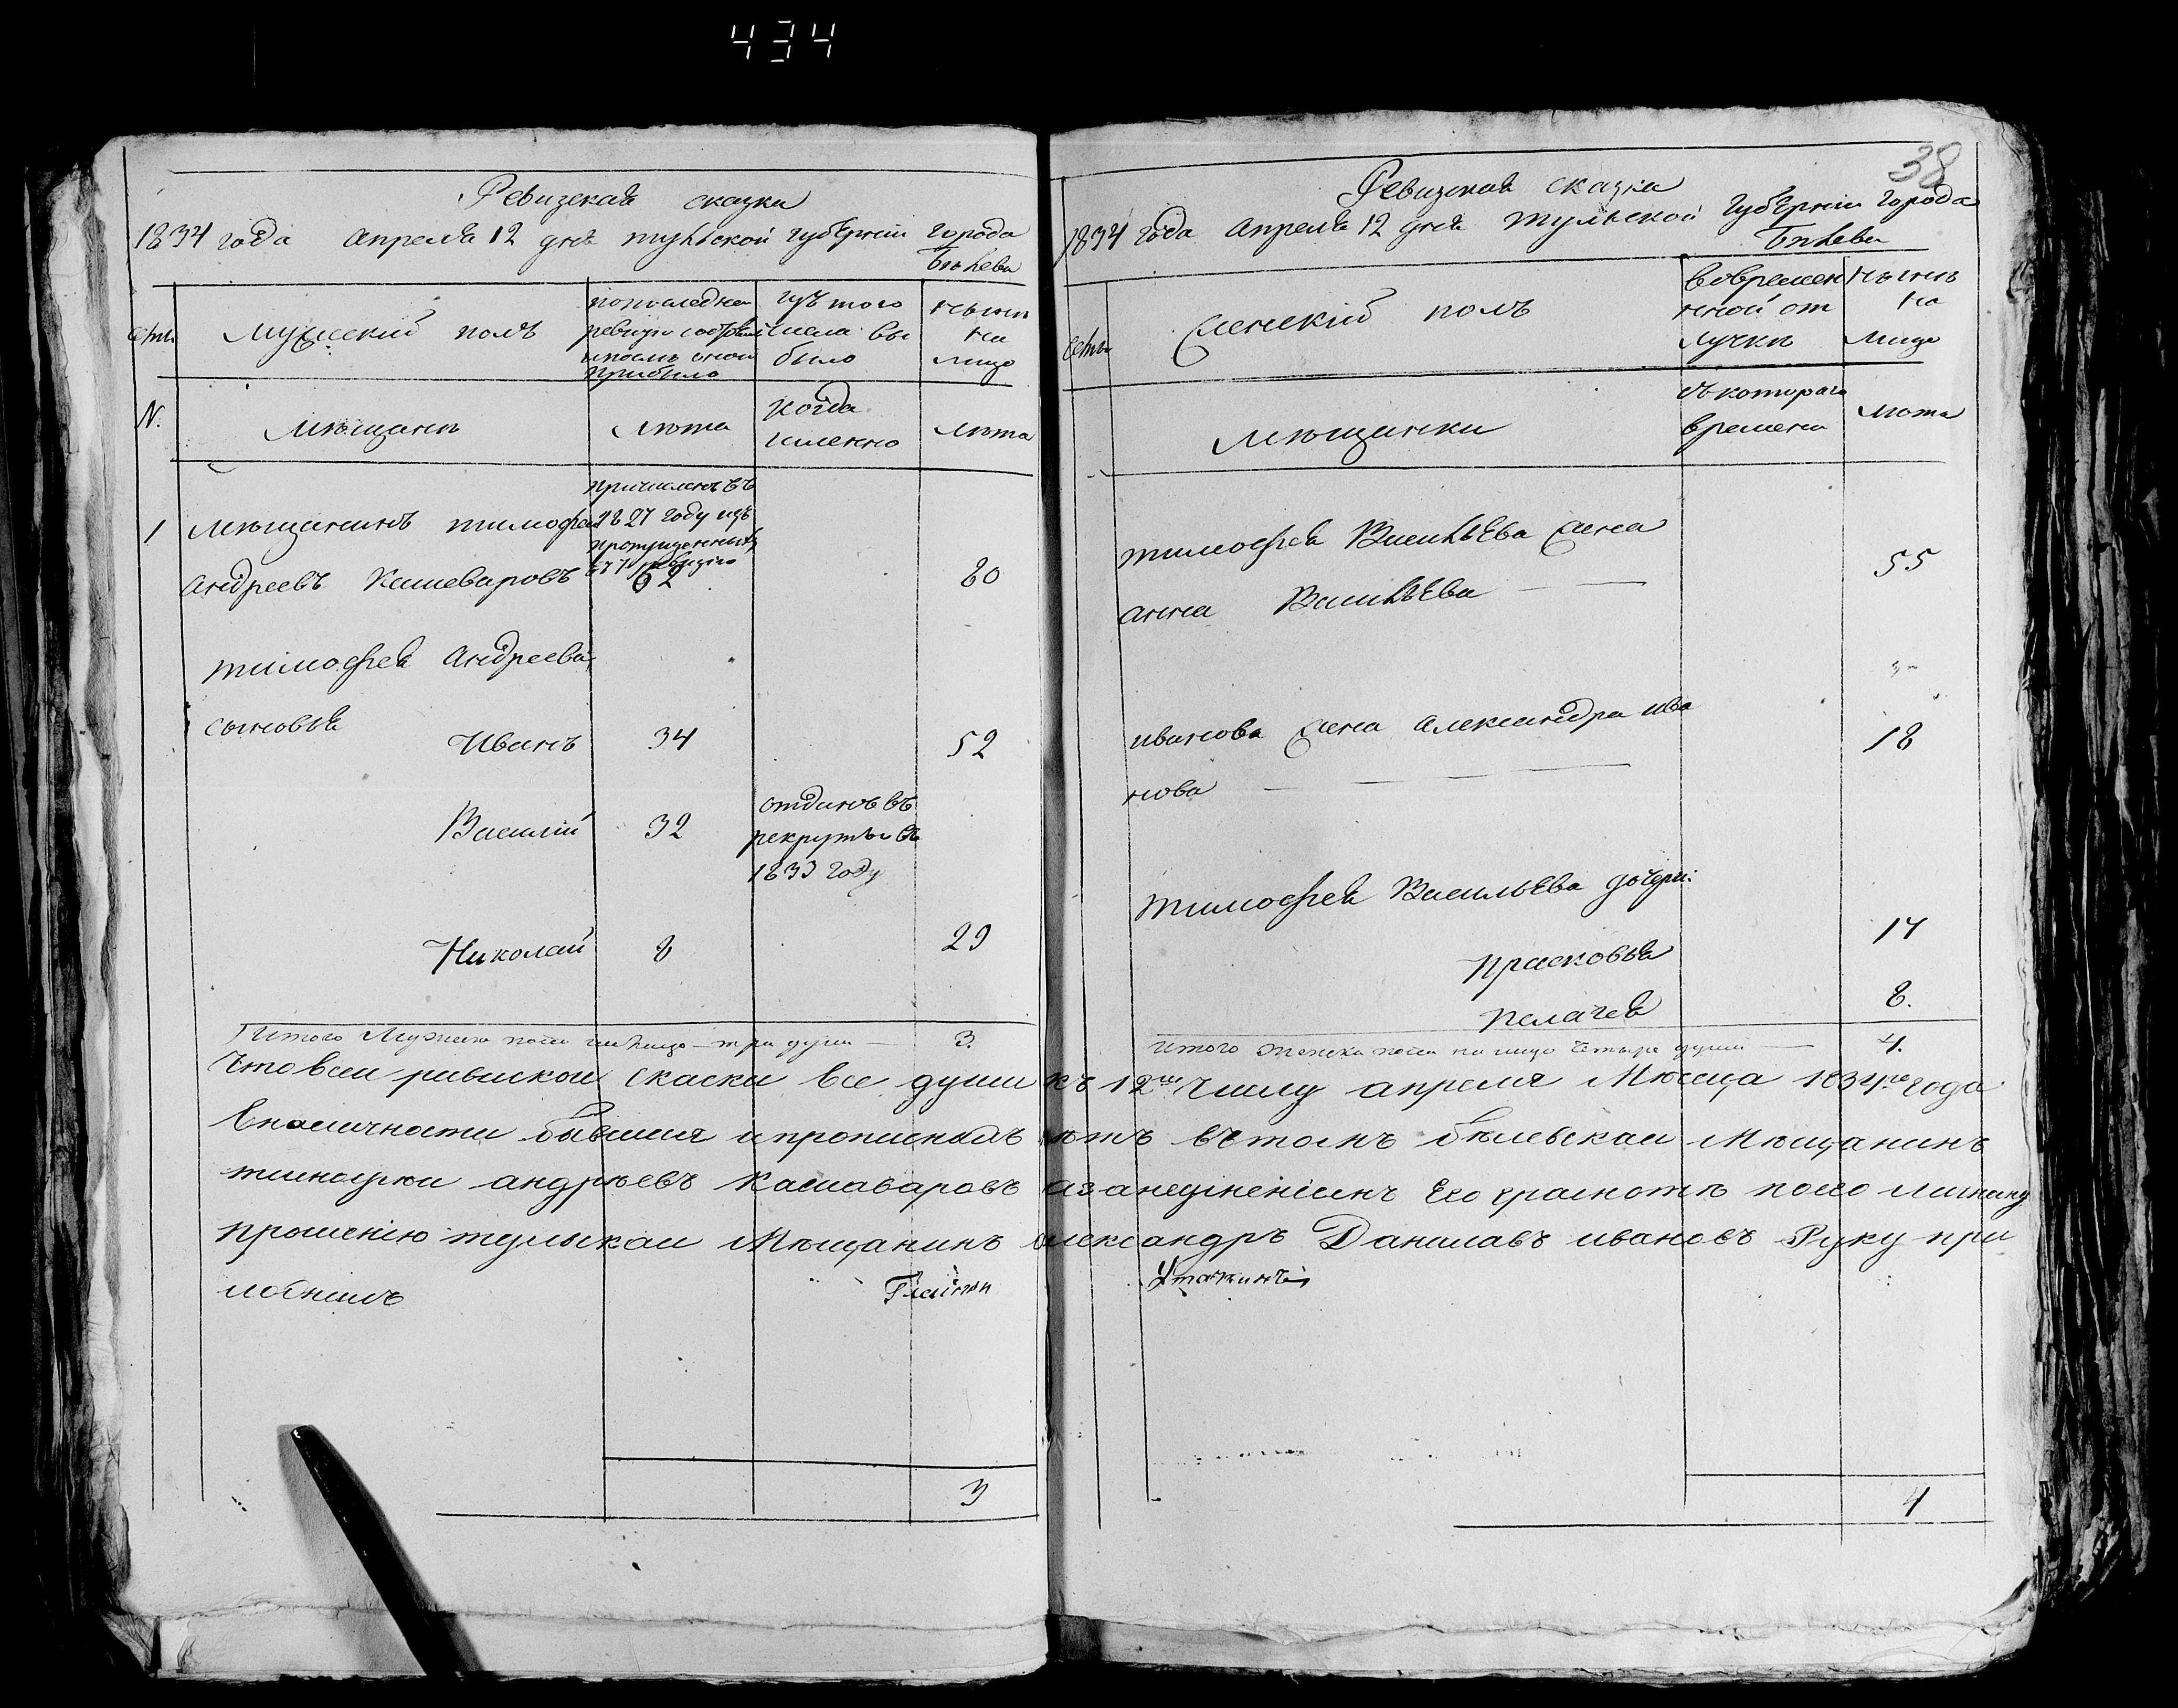 434
Ревизская сказка
1834 года апреля 12 дня тульской губернии города
Белева
мужеский полъ
по последней ревизіи состояло и после оной прибыло
изъ того числа выбыло
ныне на лицо
№.
мещане
лета
когда именно
лета
1 мещанинъ тимофей
андреевъ Кашеваровъ
причисленъ въ
1827 году изъ
62
80
тимофея андреева
сыновья
Иванъ 34 52
Василий 32
отданъ въ
рекруты въ
1833 году
Николай 8 29
Итого Мужска пола на лицо три души 3.
3
38
Ревизская сказка
1834 года апреля 12 дня тульской губернии города
Белева
женский полъ
во временной отлучке
ныне на лицо
мещанки
съ котораго времени
лета
тимофея Васильева жена
анна Васильева 55
иванова жена александра ива
нова 18
тимофея Васильева дочери:
прасковья 14
пелагея 8.
итого женска пола на лицо четыре души 4.
Что всеи ривиской скаски все души къ 12му числу апреля Месеца 1834го года
тимофеи андреевъ Кашаваровъ его грамоте по его личному
прошению тулыскаи Мещанинъ александръ Данилавъ ивановъ Руку при
ложилъ
4